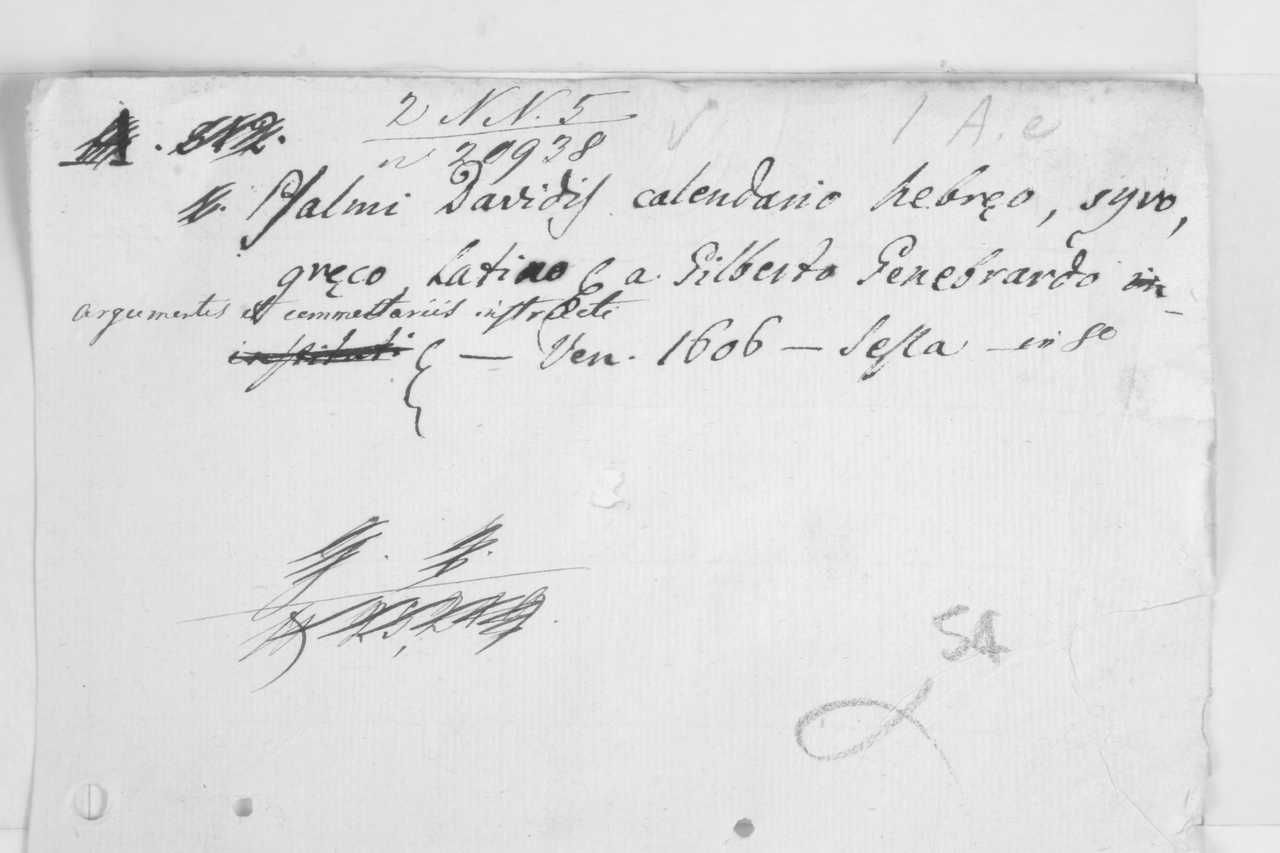 2 N N. 5
n 20938
1 A. e
Psalmi Davidis calendario hebręo, syro,
gręco, Latino a Gilberto Genebrardo in-
argumentis et commentariis instructi
instituti — Ven. 1606 — Sessa in 8o
54